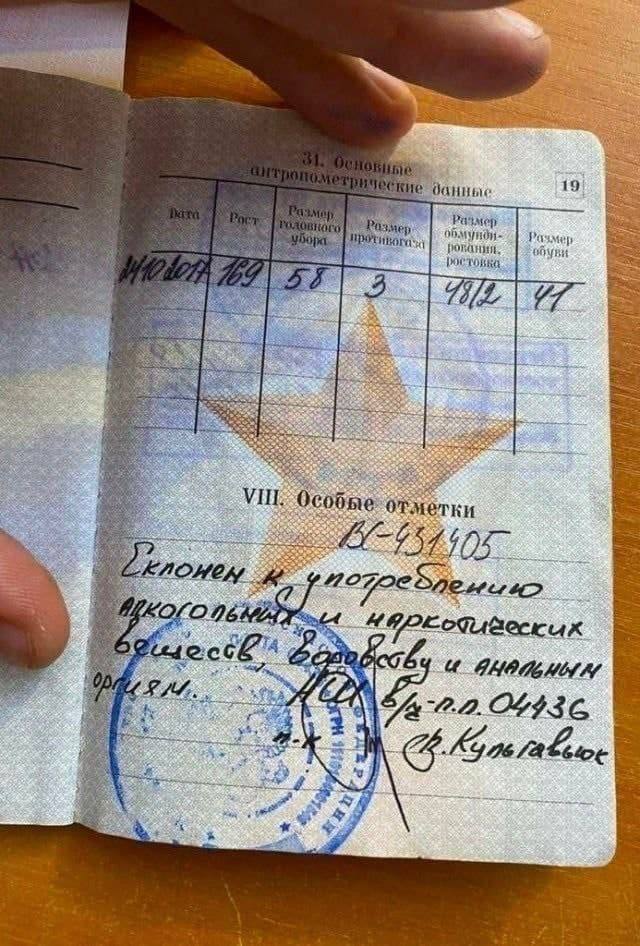 31. Основные
антропометрические данные
19
Дата
Рост
Размер
головного
убора
Размер
противогаза
Размер
обмунди-
рования,
ростовка
Размер
обуви
24102017 169 58 3 48/2 41
VIII. Особые отметки
ВС-431405
Склонен к употреблению
алкогольных и наркотических
веществ, воровству и анальным
оргиям. НШ в/ч-п.п. 04436
п-к Кульгавьюк